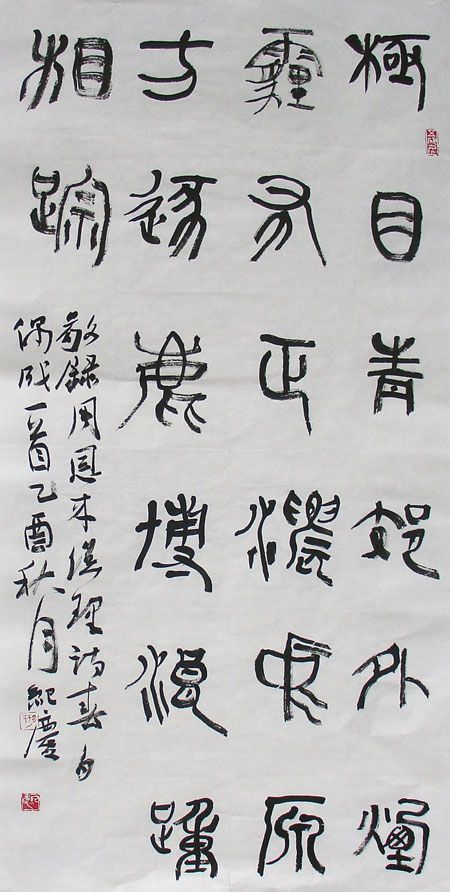 極目青郊外煙
霾布正濃中原
方逐鹿博浪踵
相踪
敬錄周恩来總理詩春日
偶成一首乙酉秋月紀慶